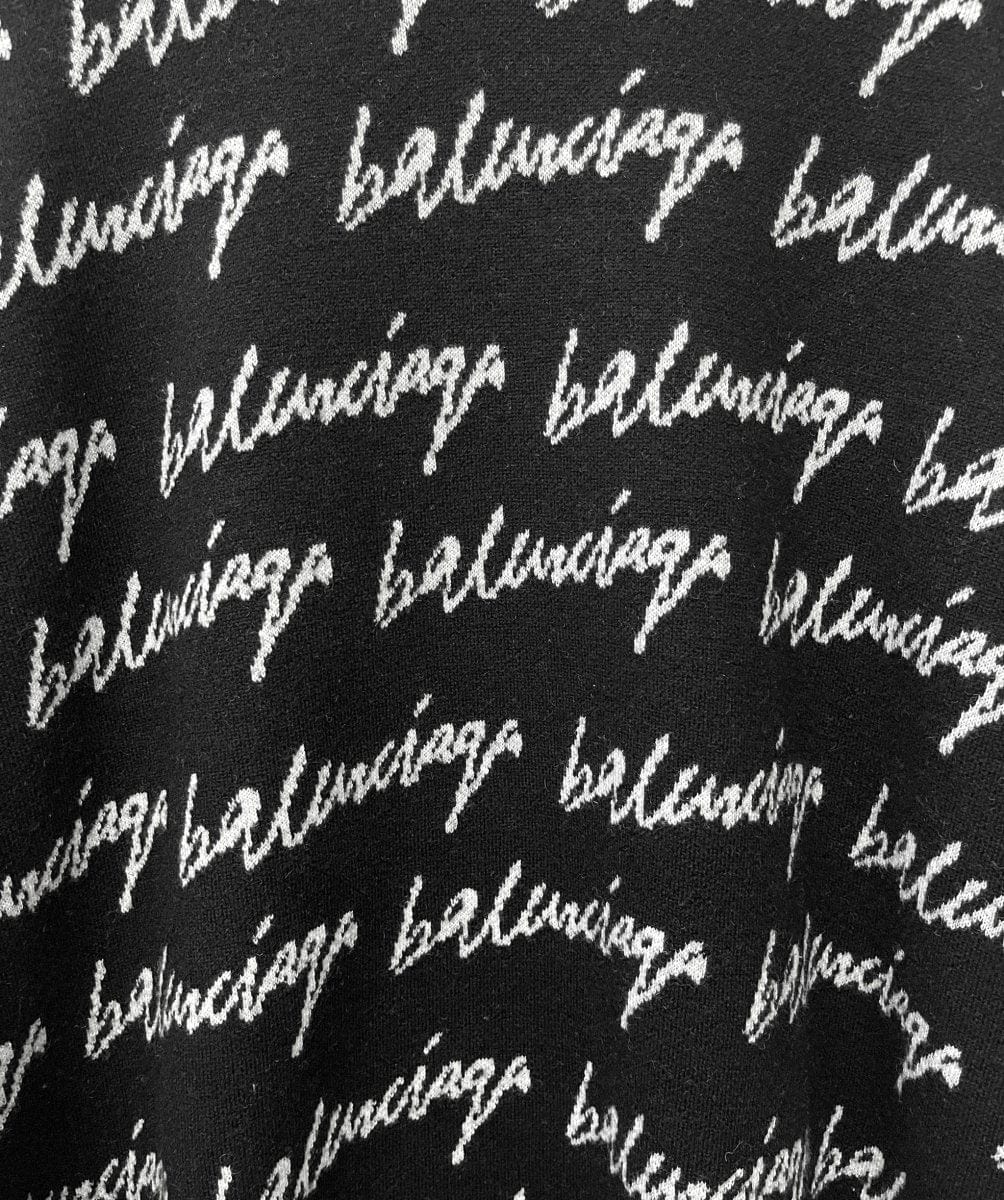 bale balenciaga balenciaga
alenciaga balenciaga balen
iaga balenciaga balenciaga ba
balenciaga balenciaga balenciaga
enciaga balenciaga balenciaga balen
ga balenciaga balenciaga balenciaga
balenciaga balenciaga ba